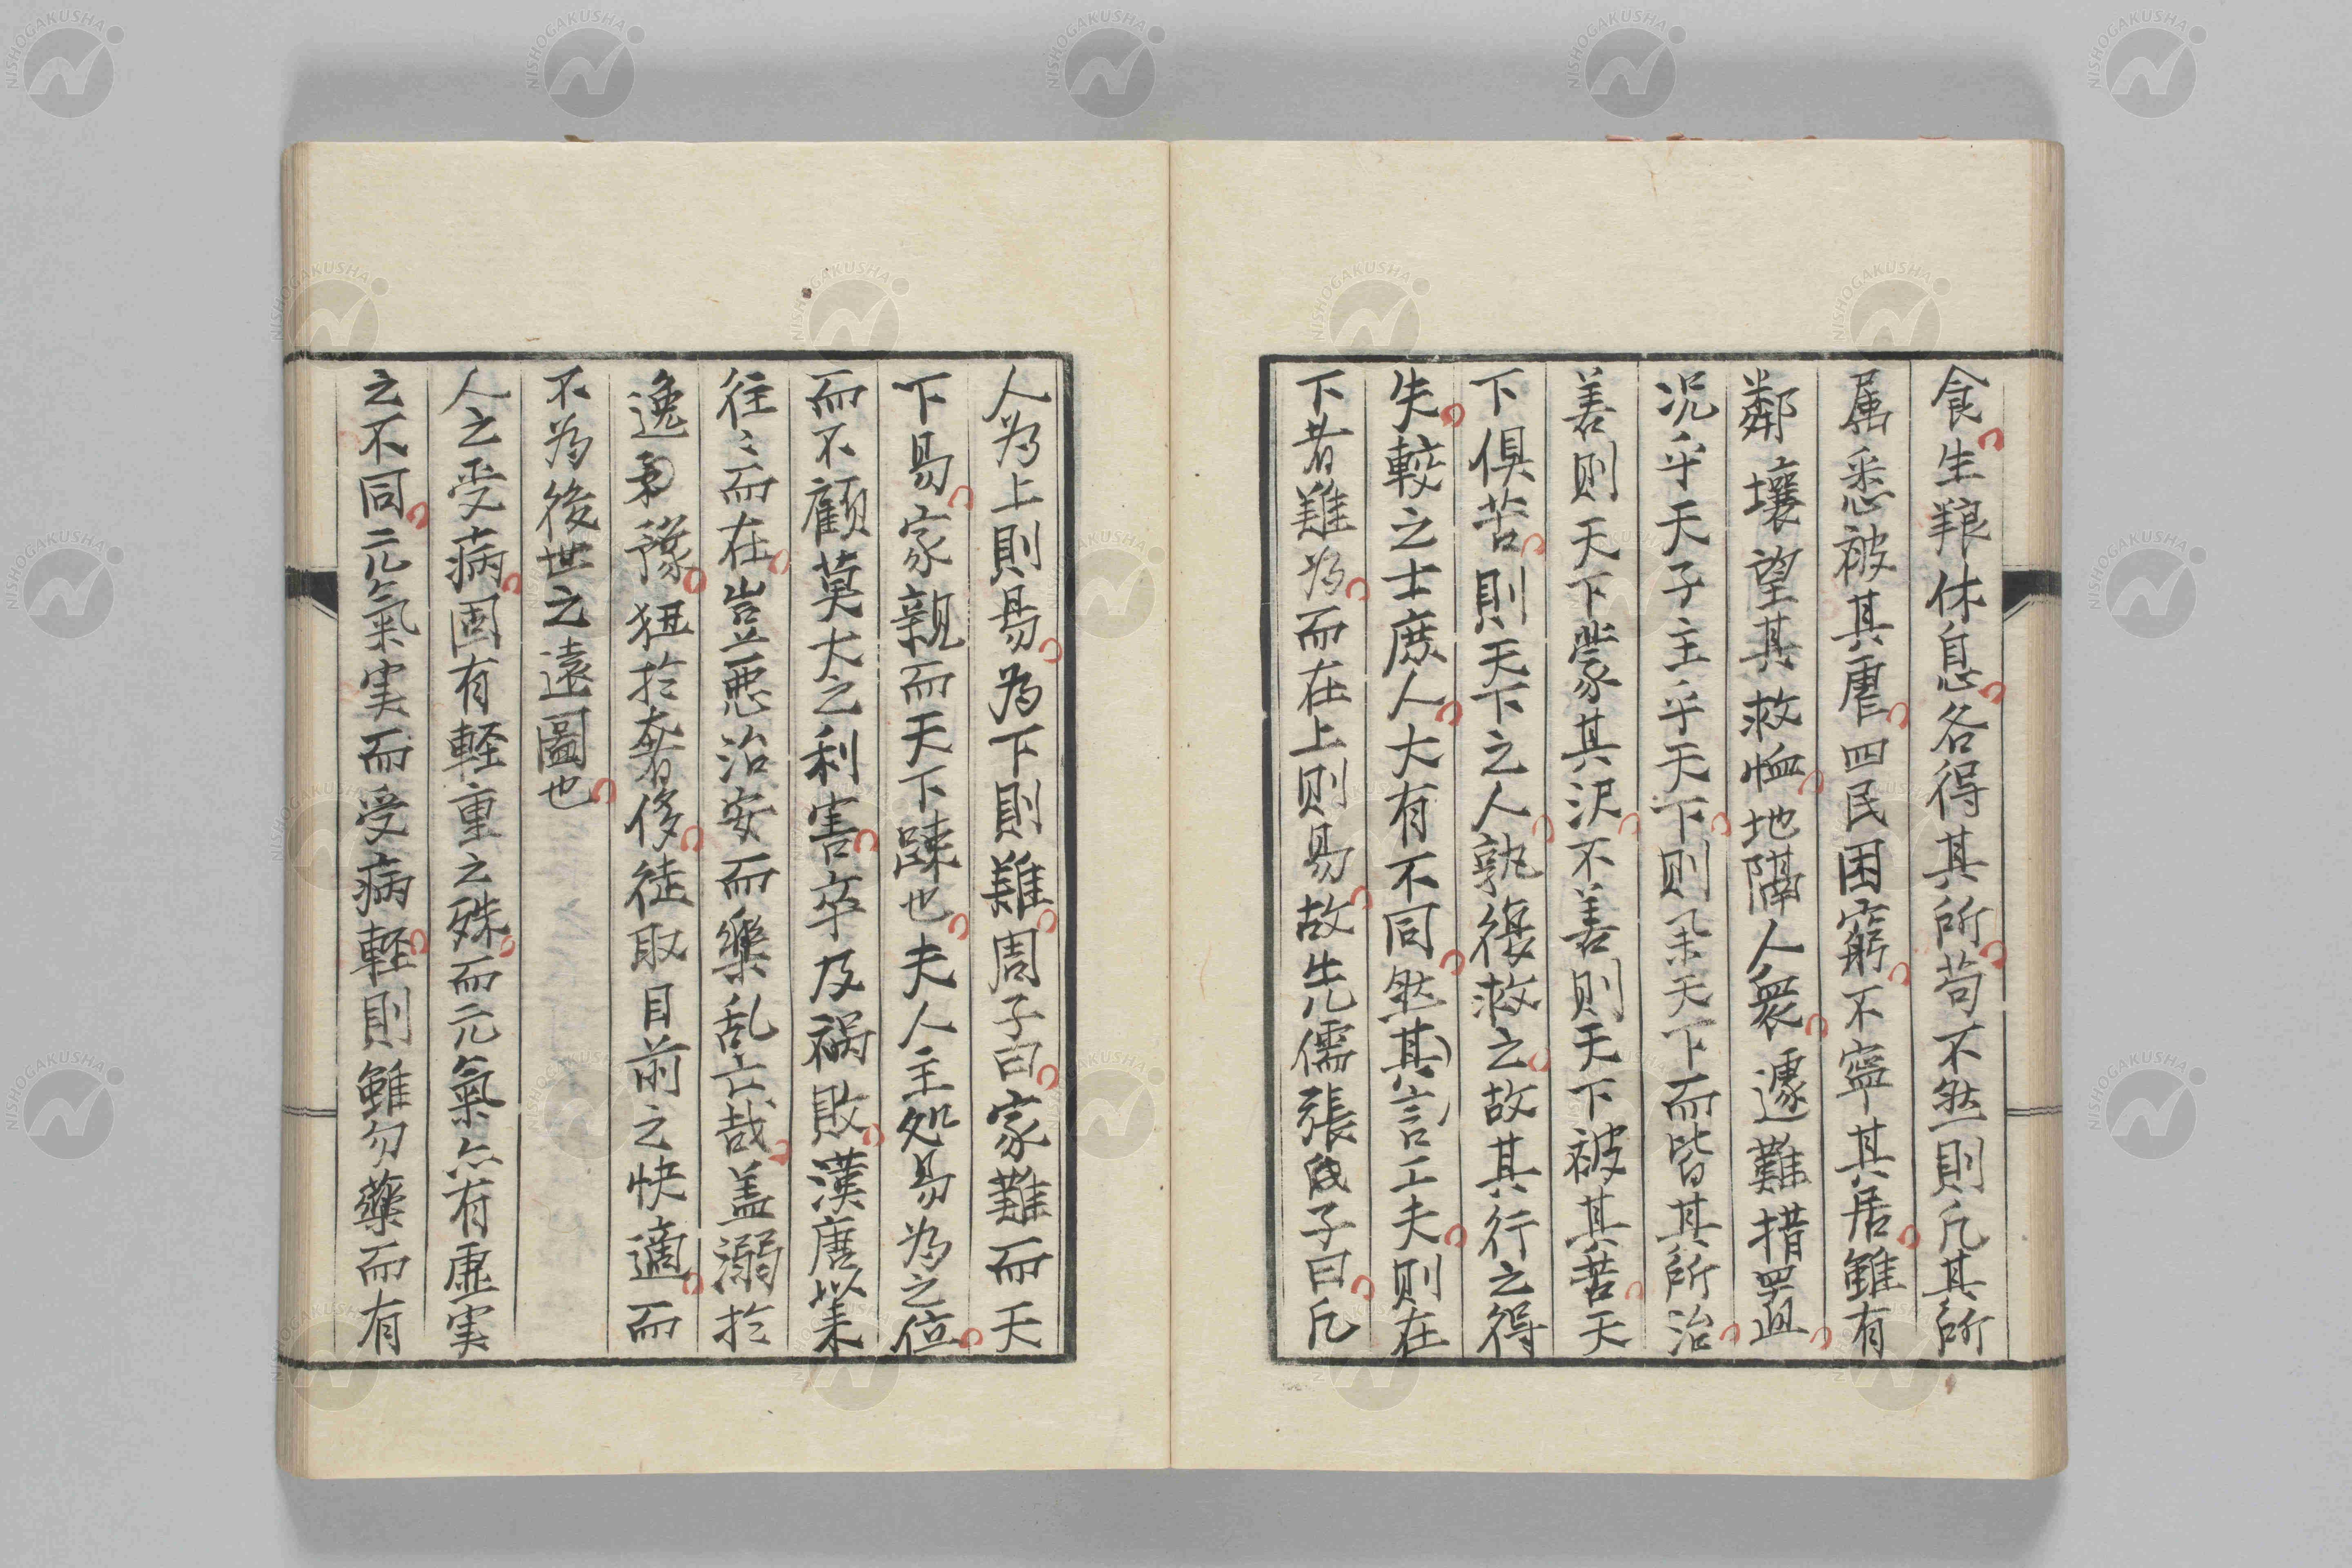 食生粮休息各得其所苟不然則凡其所
属悉被其虐四民困窮不寧其居雖有
鄰壤望其救恤地隔人衆遽難措置
况乎天子主乎天下則举天下而皆其所治
善則天下蒙其沢不善則天下被其苦天
下俱苦則天下之人孰復救之故其行之得
失較之士庶人大有不同然其言工夫則在
下者難為而在上則易故先儒張子曰凡
人為上則易為下則難周子曰家難而天
下易家親而天下踈也夫人主処易為之位
而不顧莫大之利害卒及禍敗漢唐以来
往々而在豈悪治安而樂乱亡哉盖溺於
逸豫狃於奢侈徒取目前之快適而
不為後世之遠圖也
人之受病固有軽重之殊而元氣亦有虚実
之不同元氣実而受病軽則雖勿藥而有
NISHOGAKUSHA